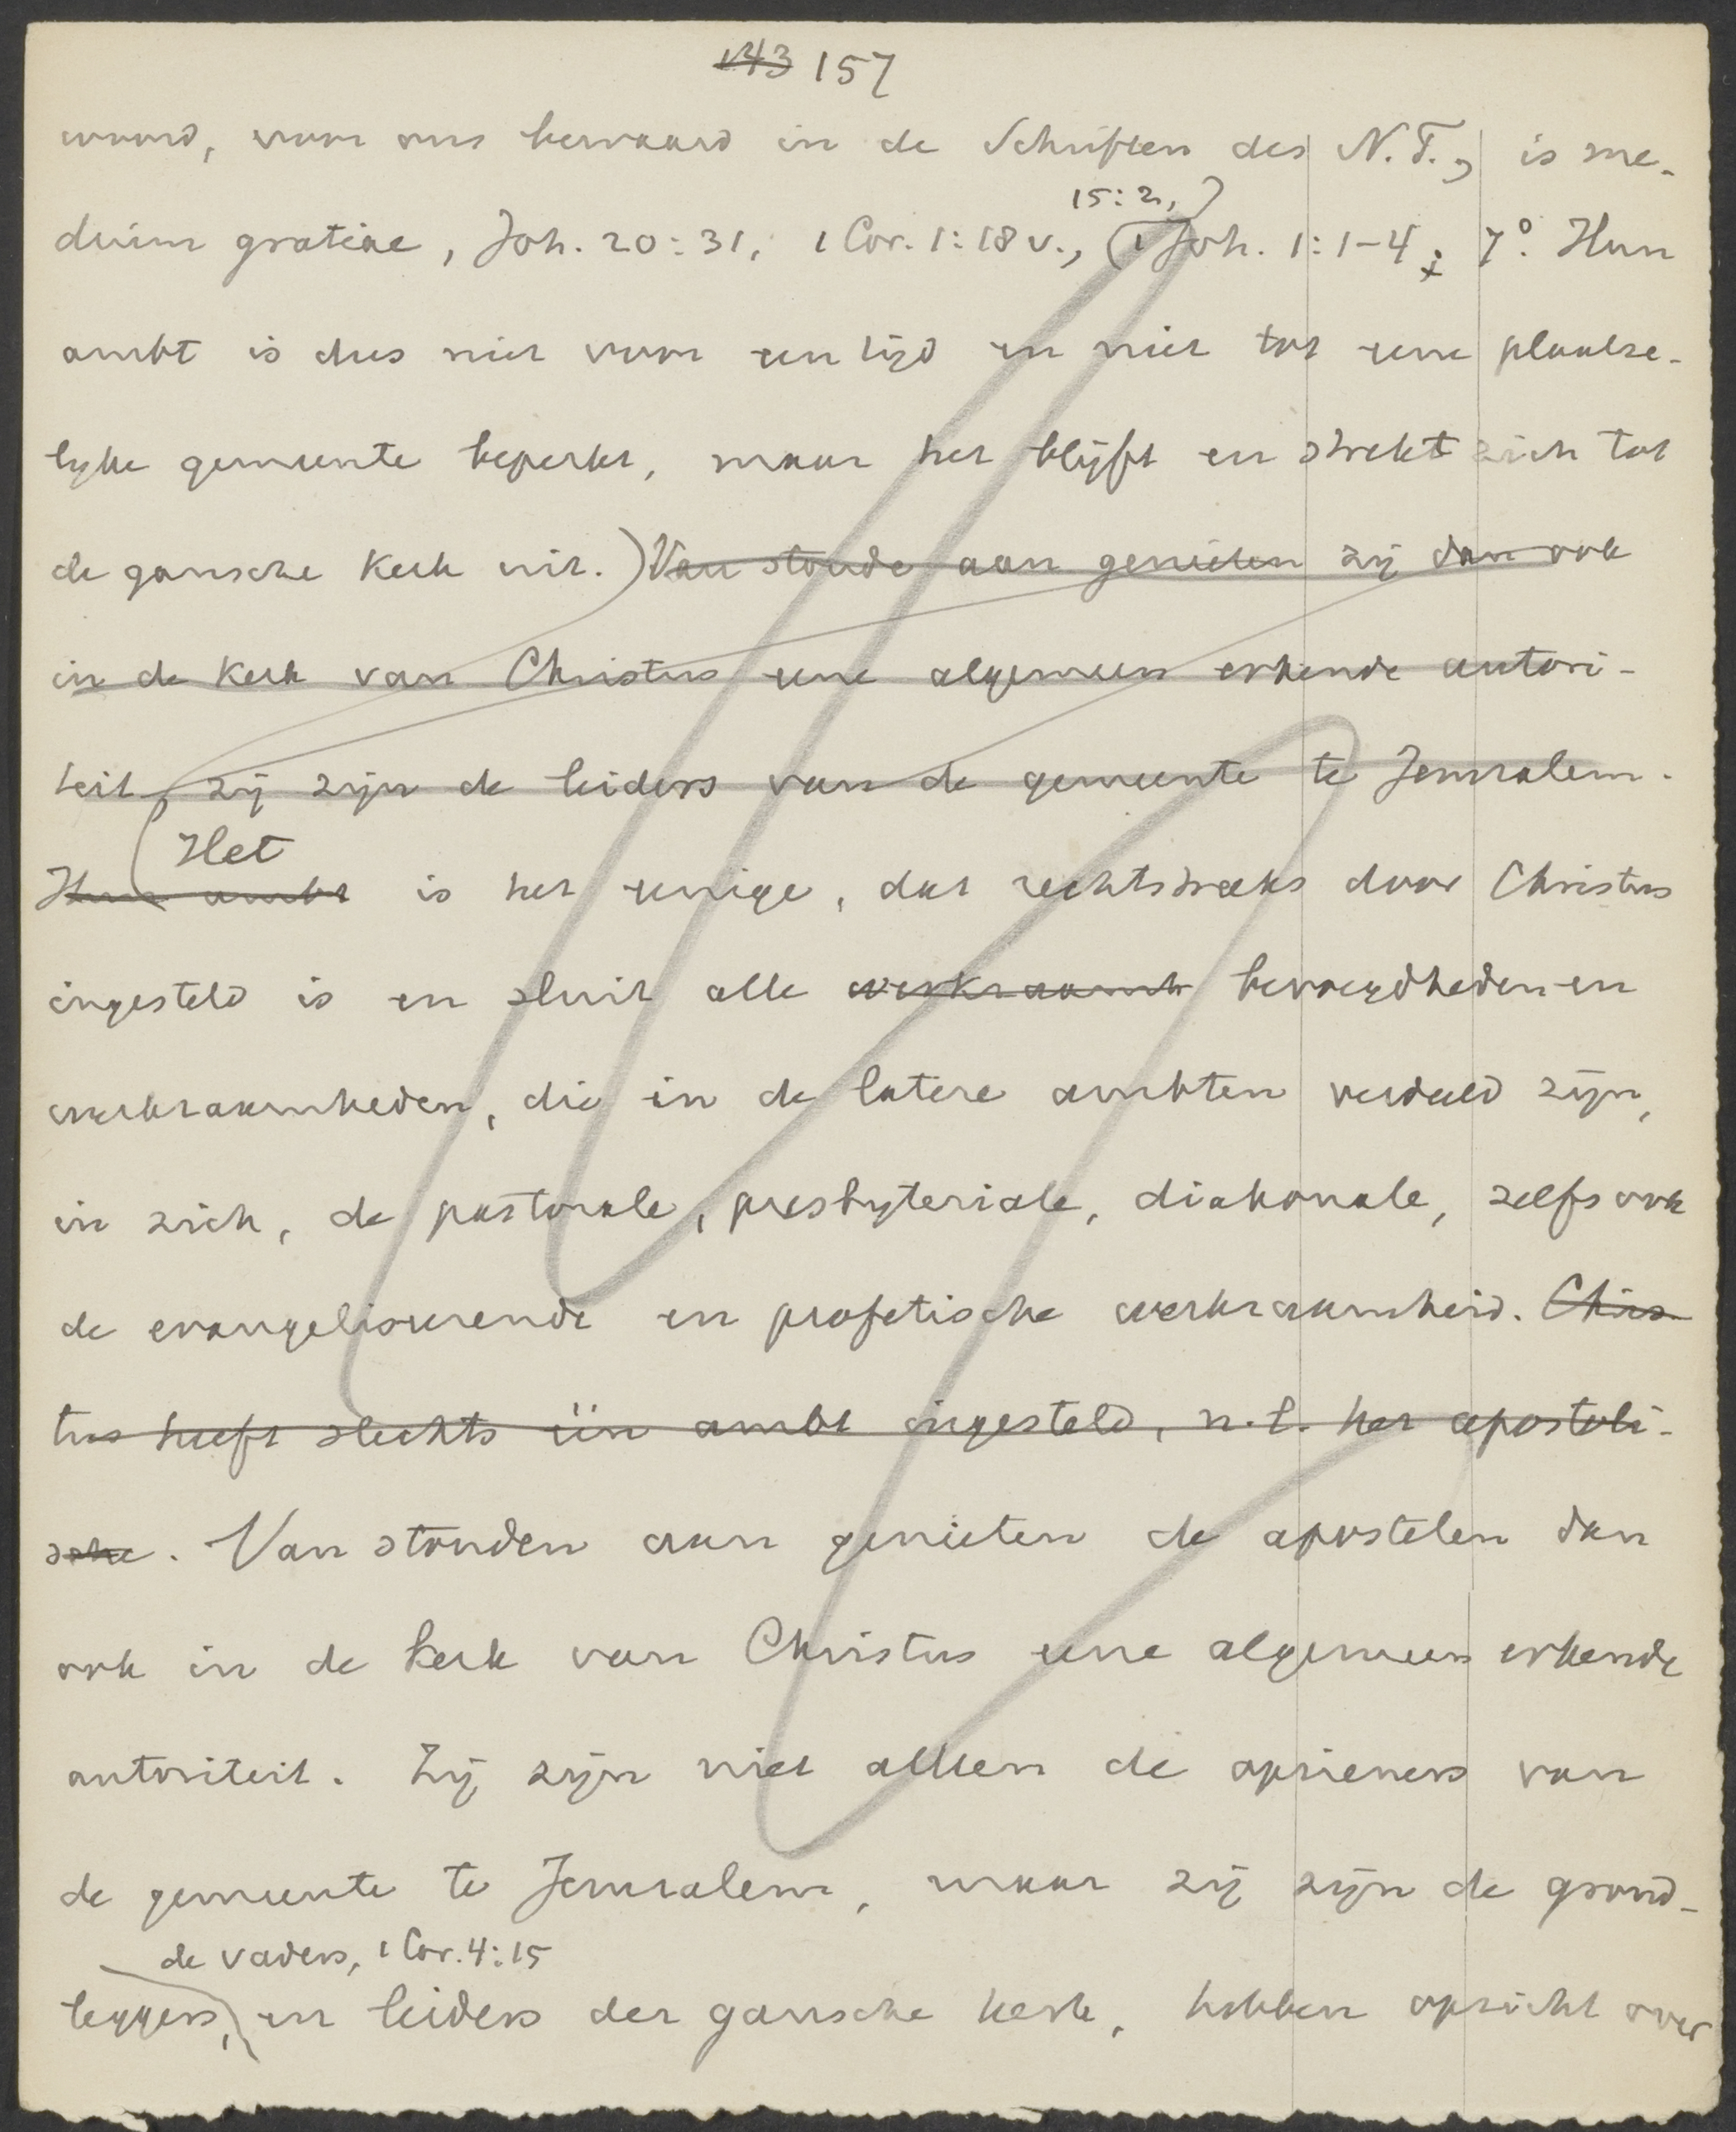 143 157
woord, voor ons bewaard in de Schriften des N.T., is me-
15:2,
dium gratiae, Joh. 20:31, 1 Cor. 1:18 v., 1 Joh. 1:1-4; 7° Hun
ambt is dus niet voor een tijd en niet tot eene plaatse-
lijke gemeente beperkt, maar het blijft en strekt zich tot
de gansche kerk uit. Van stonde aan genieten zij dan ook
in de Kerk van Christus eene algemeen erkende autori-
teit, zij zijn de leiders van de gemeente te Jeruzalem.
Het
Hun ambt is het eenige, dat rechtstreeks door Christus
ingesteld is en sluit alle werkzaamh bevoegdheden en
werkzaamheden, die in de latere ambten verdeeld zijn,
in zich, de pastorale, presbyteriale, diakonale, zelfs ook
de evangeliseerende en profetische werkzaamheid. Chris-
tus heeft slechts één ambt ingesteld, n.l. het apostoli-
sche. Van stonden aan genieten de apostelen dan
ook in de kerk van Christus eene algemeen erkende
autoriteit. Zij zijn niet alleen de opzieners van
de gemeente te Jeruzalem, maar zij zijn de grond-
de vaders, 1 Cor. 4:15
leggers, en leiders der gansche kerk, hebben opzicht over